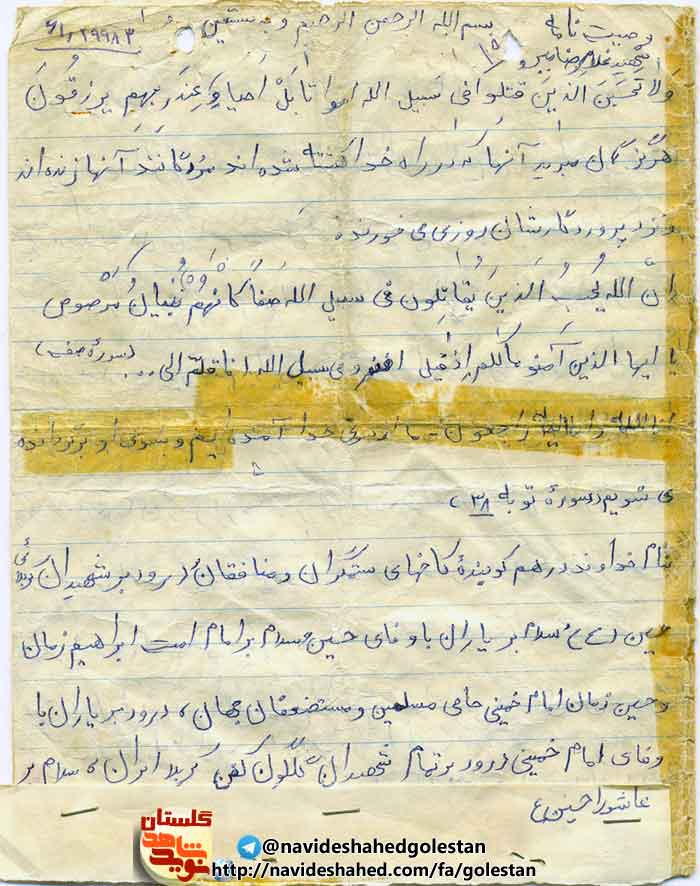 وصیت نامه
شهید غلامرضا
بسم الله الرحمن الرحیم و به نستعین
ولا تحسبن الذین قتلوا فی سبیل الله امواتا بل احیاء عند ربهم یرزقون
هرگز گمان مبرید آنها که در راه خدا کشته شده اند مردگانند آنها زنده اند
و نزد پروردگارشان روزی می خورند
ان الله یحب الذین یقاتلون فی سبیل الله صفا کانهم بنیان مرصوص
(سوره صف)
یا ایها الذین آمنو مالکم اذقیل سبیل الله اثاقلتم الی ...
انا لله و انا الیه راجعون - ما از سوی خدا آمده ایم و بسوی او برگردانده
می شویم (سوره توبه ۳۸)
بنام خداوند درهم کوبنده کاخهای ستمگران و منافقان درود بر شهیدان کربلای
حسین (ع) سلام بر یاران با وفای حسین سلام بر امام امت ابراهیم زمان
و حسین زمان امام خمینی حامی مسلمین و مستضعفان جهان، درود بر یاران با
وفای امام خمینی درود بر تمام شهیدان گلگون کفن کربلا ایران، سلام بر
عاشورا حسین ع
گلستان
نوید شاهد
@navideshahedgolestan
http://navideshahed.com/fa/golestan